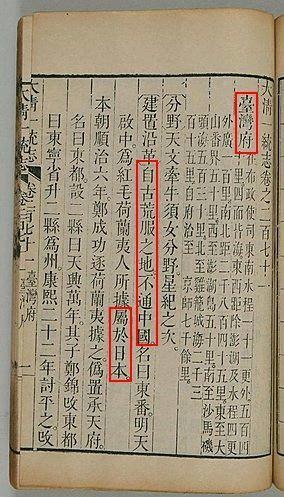 大清一統志卷之二百七十一
臺灣府
在布政使司東南水程
山番界五十里西至澎湖島五十里南至沙馬磯
頭海五百三十里北至雞籠城海二千三
百十五里自府治至 京師七千餘里
分野天文牽牛須女分野星紀之次。
建置沿革自古荒服之地不通中國名曰東番。明天
啟中為紅毛荷蘭夷人所據屬於日本
本朝順治六年鄭成功逐荷蘭夷據之偽置承天府。
名曰東都設二縣曰天興萬年其子鄭錦改東都
曰東寧省升二縣為州康熙二十二年討平之改
大清一統志
臺灣府
一